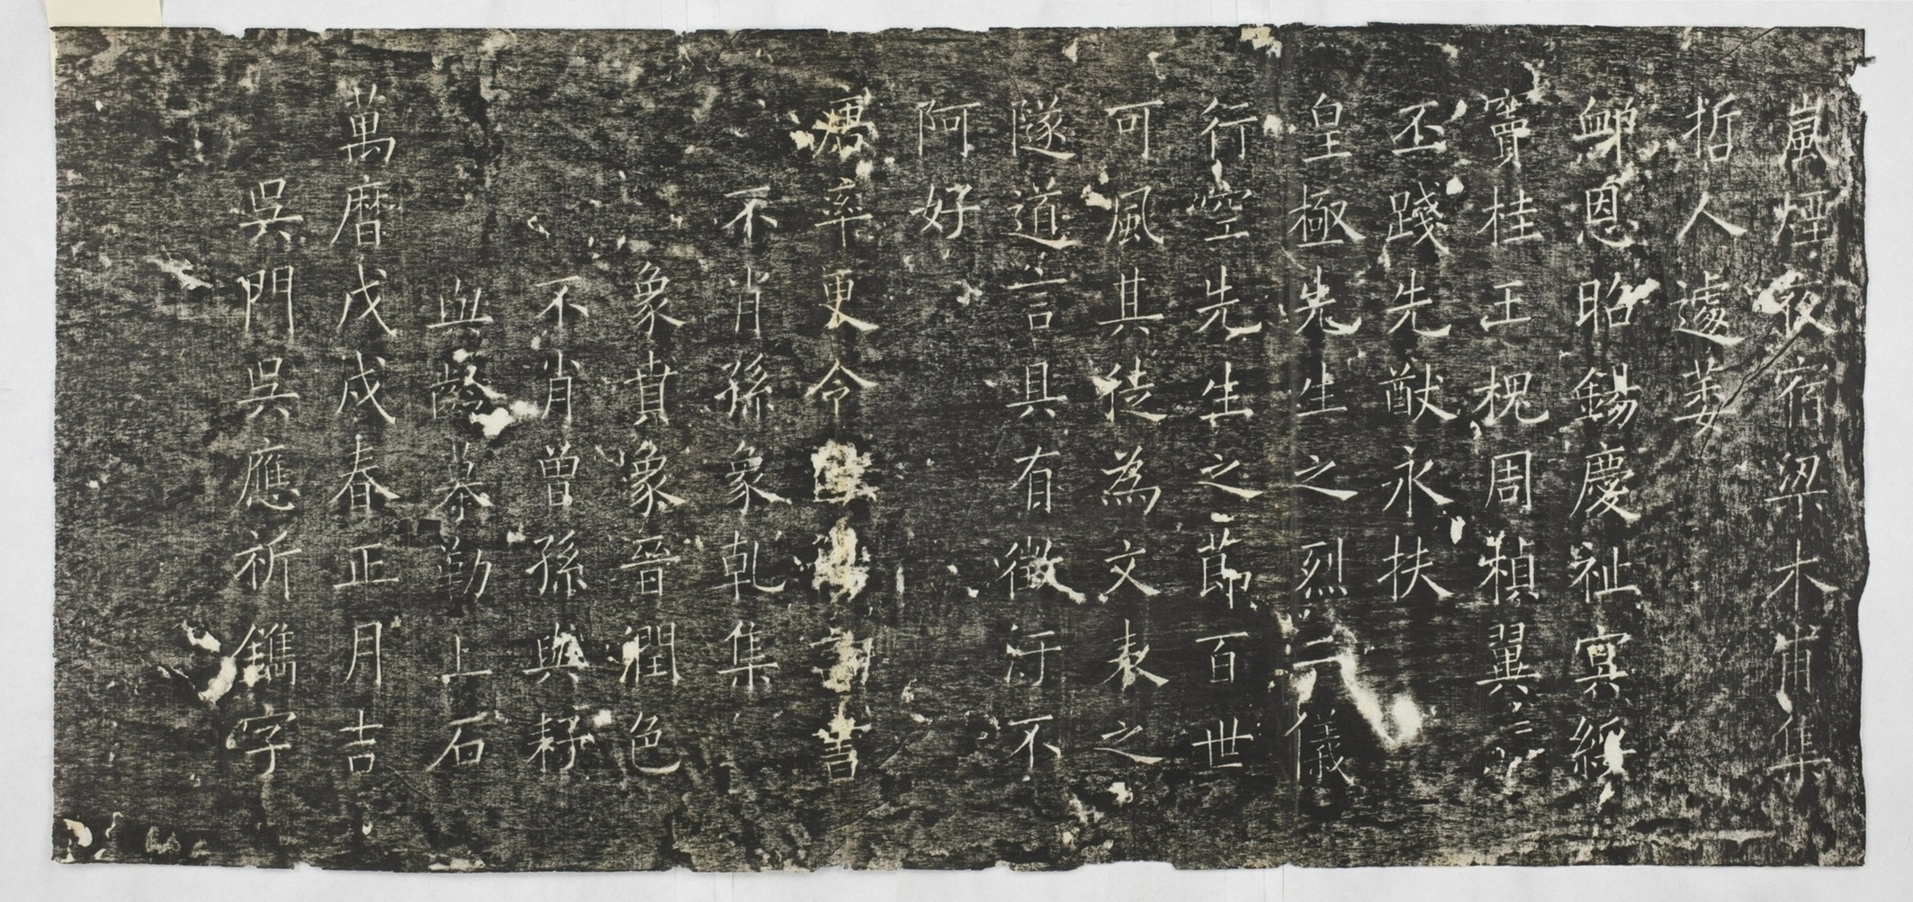 嵐煙夜宿梁木甯集
哲人遽萎
卹恩昭錫慶祉冥綏
竇桂王槐周楨翼
丕踐先猷永扶
皇極先生之烈二儀
行空先生之節百世
可風其徒為文表之
隧道言具有徵汙不
阿好
率更令 書
不肖孫象乾集
象賁象晉潤色
不肖曾孫與耔
與齡摹勒上石
萬曆戊戌春正月吉
吳門吳應祈鐫字